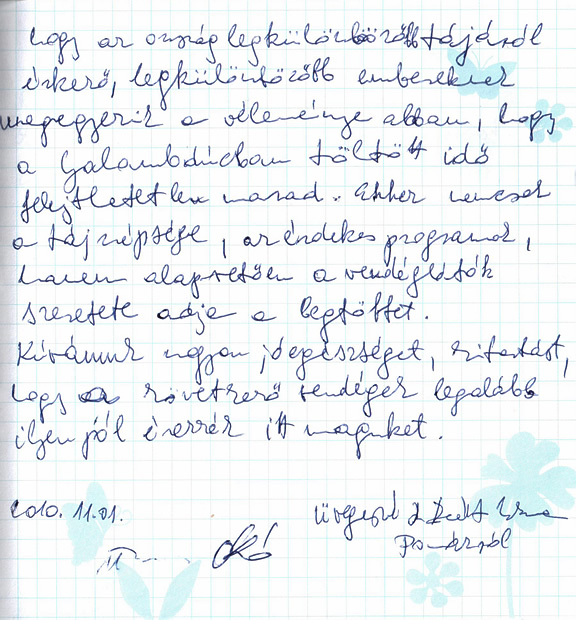 hogy az ország legkülönbözőbb tájáról
érkező, legkülönbözőbb embereknek
megegyezik a véleménye abban, hogy
a Galambdúcban töltött idő
felejthetetlen marad. Ehhez nemcsak
a táj szépsége, az érdekes programok,
hanem alapvetően a vendéglátók
szeretete adja a legtöbbet.
Kívánunk nagyon jó egészséget, kitartást,
hogy a következő vendégek legalább
ilyen jól érezzék itt magukat.
2010. 11.01.